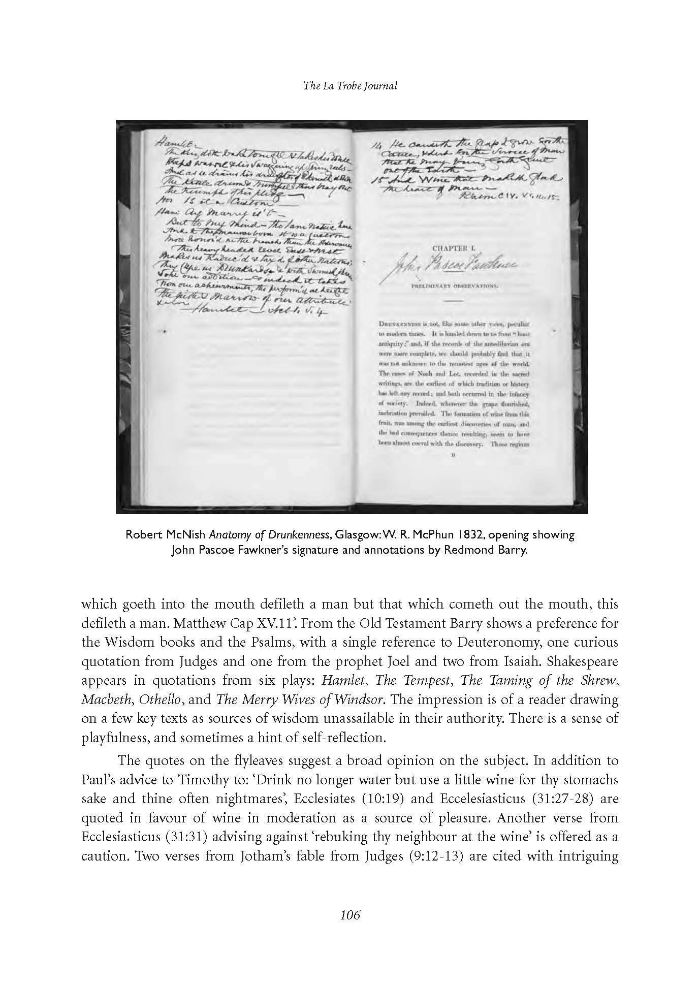 The La Trobe Journal
Hamlet –
The King doth wake tonight & takes his
Keeps wassail &
And as he drains his draughts of Rhenish
The kettle drum & trumpet thus bray out
the triumph of his pledge –
Hor Is it a Custom
Ham Ay Marry is't –
But to My Mind – tho I am Native here
And to the manner born it is a Custom
More honor'd in the breach than the observance
This heavy headed revel East & West
Makes us traduc'd & tax'd of other Nations
They Clepe us Drunkards & with
our addition – & indeed it takes
From our achievements, tho perform'd at height
The pith & Marrow of our Attribute
Hamlet – Act 1. S. 4
14 He causeth the grass to grow for the
Cattle, & herb for the Service of Man
that he may bring forth fruit
out of the Earth –
15 And Wine that maketh glad
the heart of Man –
Psalm CIV. V. 14. 15.
CHAPTER I.
John Pascoe Fawkner
PRELIMINARY OBSERVATIONS.
DRUNKENNESS is not, like some other vices, peculiar
to modern times. It is handed down to us from "hoar
antiquity;" and, if the records of the antediluvian era
were more complete, we should probably find that it
was not unknown to the remotest ages of the world.
The cases of Noah and Lot, recorded in the sacred
writings, are the earliest of which tradition or history
has left any record; and both occurred in the infancy
of society. Indeed, wherever the grape flourished,
inebriation prevailed. The formation of wine from this
fruit, was among the earliest discoveries of man, and
the bad consequences thence resulting, seem to have
been almost coeval with the discovery. Those regions
B
Robert McNish Anatomy of Drunkenness, Glasgow: W. R. McPhun 1832, opening showing
John Pascoe Fawkner's signature and annotations by Redmond Barry.
which goeth into the mouth defileth a man but that which cometh out the mouth, this
defileth a man. Matthew Cap XV.11’. From the Old Testament Barry shows a preference for
the Wisdom books and the Psalms, with a single reference to Deuteronomy, one curious
quotation from Judges and one from the prophet Joel and two from Isaiah. Shakespeare
appears in quotations from six plays: Hamlet, The Tempest, The Taming of the Shrew,
Macbeth, Othello, and The Merry Wives of Windsor. The impression is of a reader drawing
on a few key texts as sources of wisdom unassailable in their authority. There is a sense of
playfulness, and sometimes a hint of self-reflection.
The quotes on the flyleaves suggest a broad opinion on the subject. In addition to
Paul’s advice to Timothy to: ‘Drink no longer water but use a little wine for thy stomachs
sake and thine often nightmares’, Ecclesiates (10:19) and Eccelesiasticus (31:27-28) are
quoted in favour of wine in moderation as a source of pleasure. Another verse from
Ecclesiasticus (31:31) advising against ‘rebuking thy neighbour at the wine’ is offered as a
caution. Two verses from Jotham’s fable from Judges (9:12-13) are cited with intriguing
106